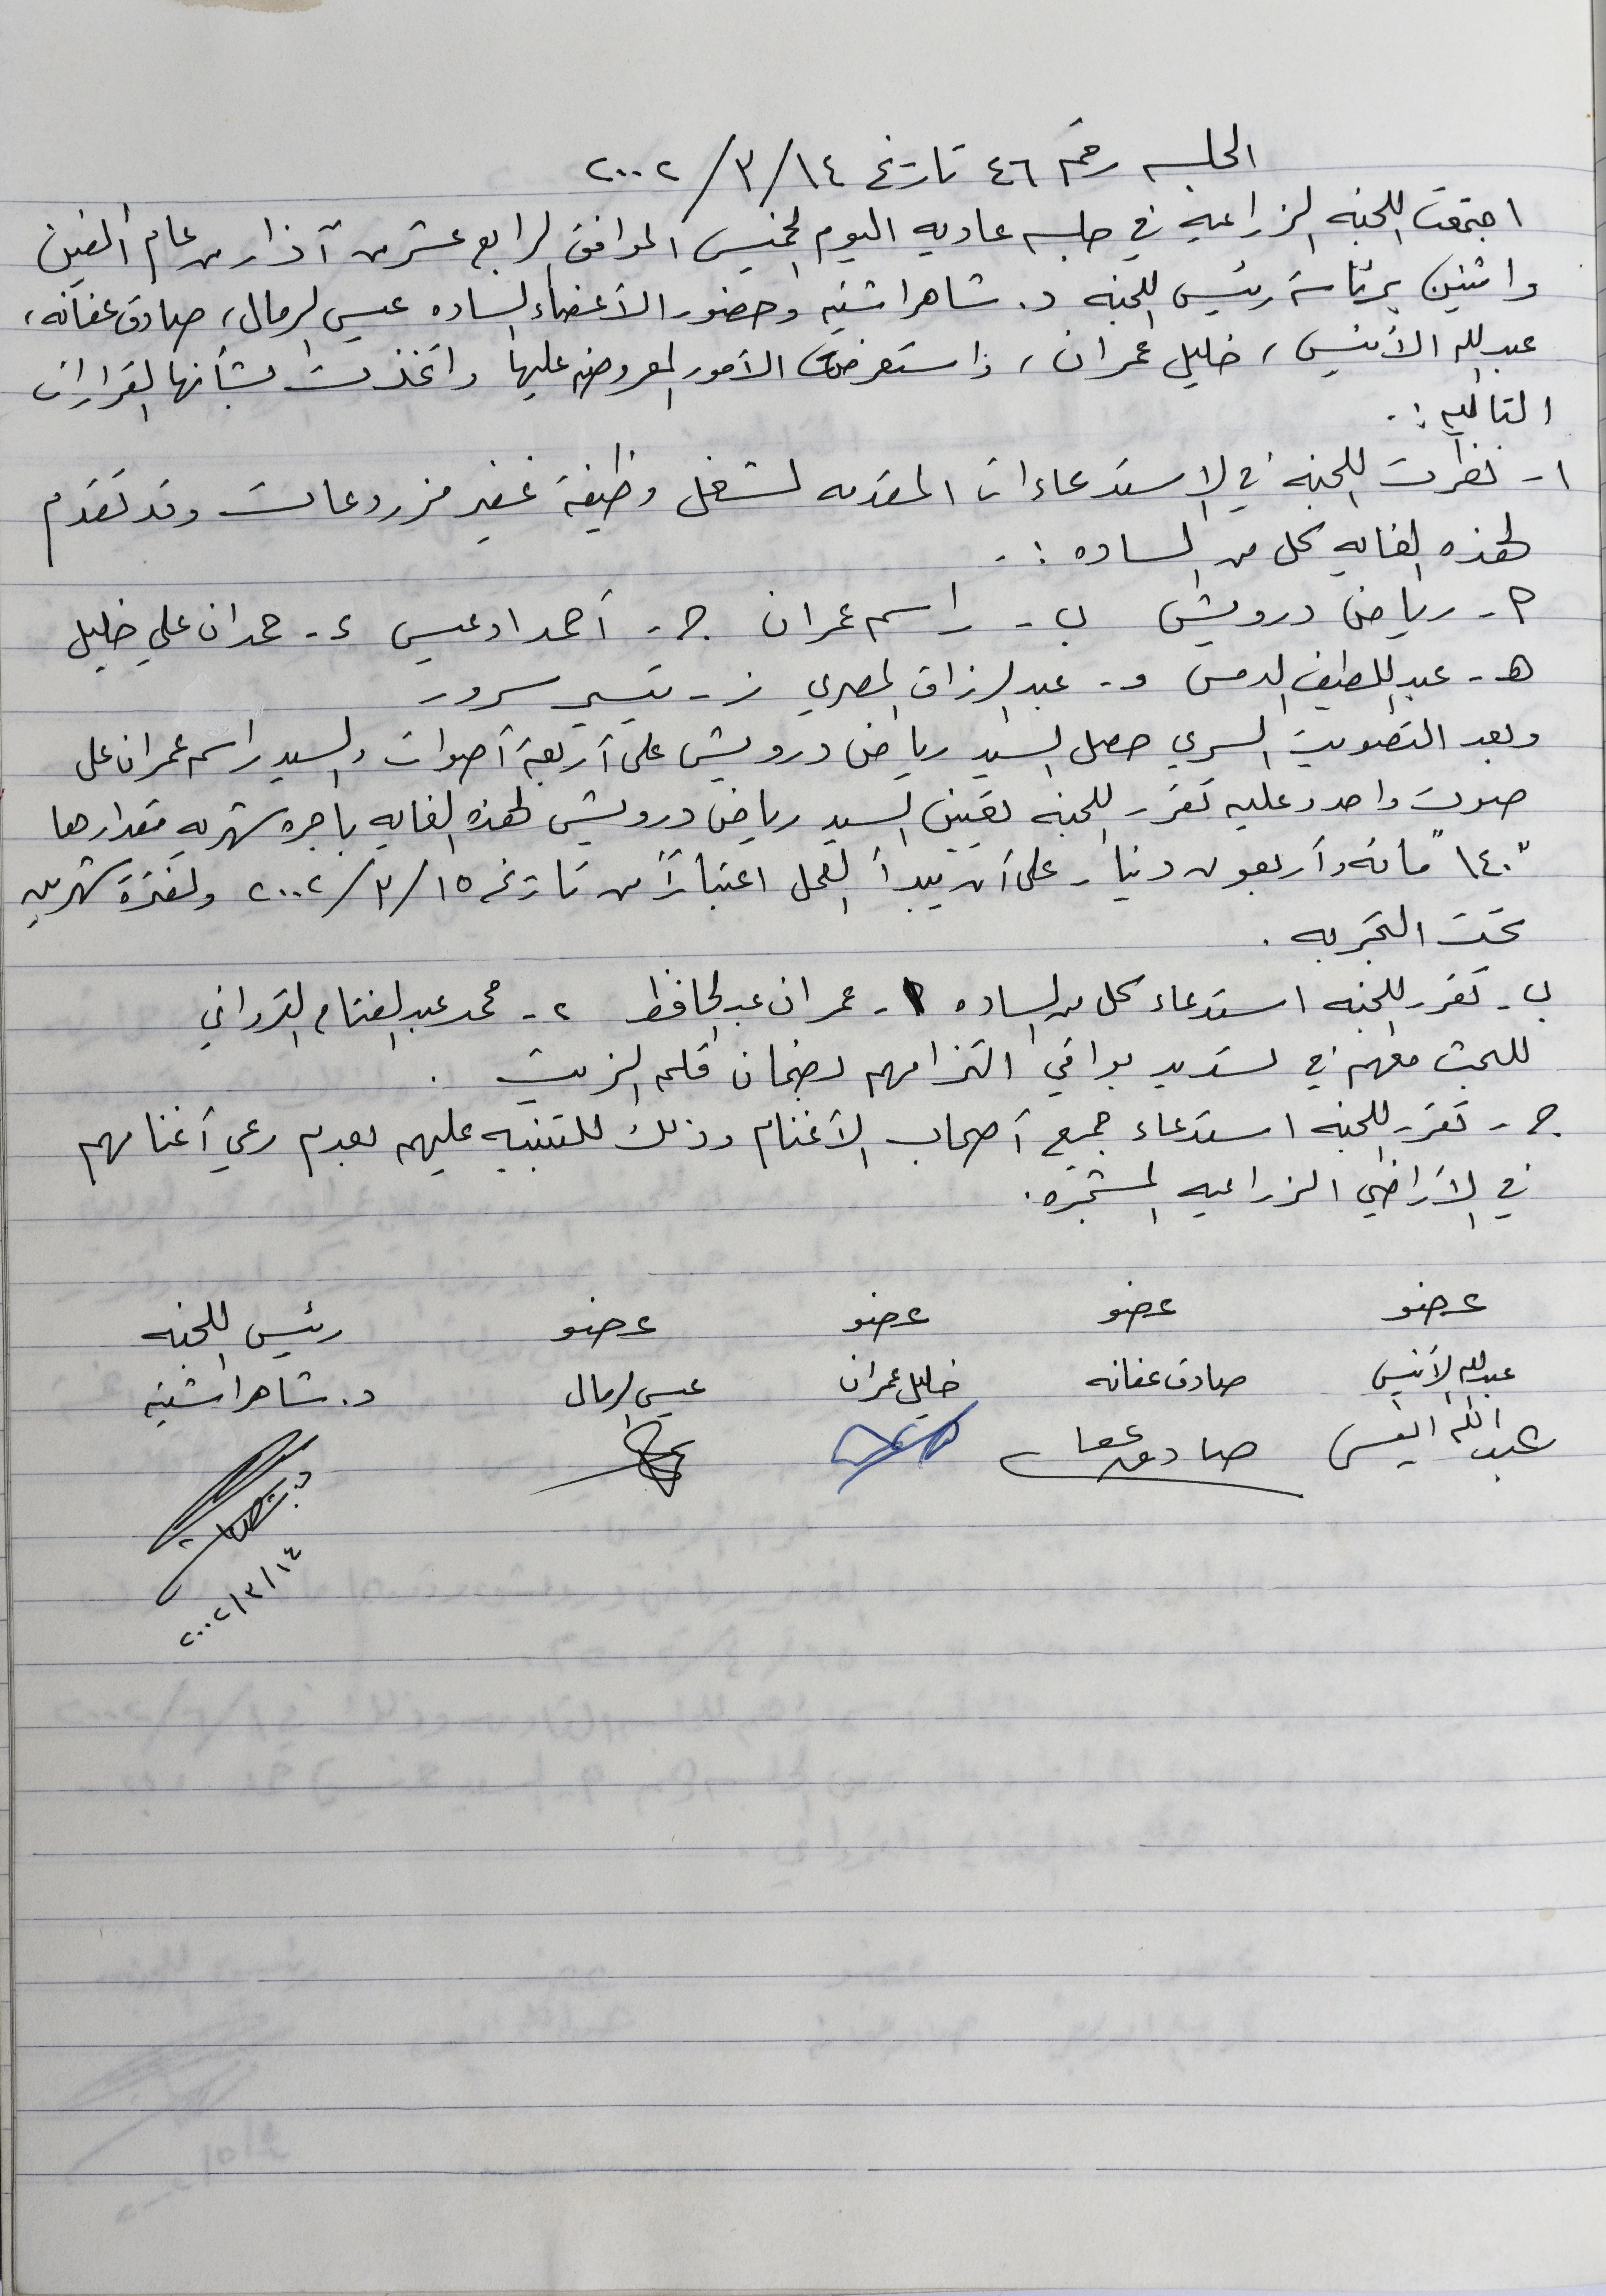 الجلسه رقم ٤٦ تاريخ ١٤/٣/٢٠٠٢
اجتمعت اللجنه الزراعية في جلسه عاديه اليوم الخميس الموافق الرابع عشر من آذار من عام ألفين
واثنين برئاسة رئيس اللجنه د. شاهر اشتيه وحضور الأعضاء الساده عيسى الرمال، صادق عفانه،
عبدالله الأنيس، خليل عمران، واستعرضت الأمور المعروضه عليها واتخذت بشأنها القرارات
التاليه :.
١- نظرت اللجنه في الاستدعاءات المقدمه لشغل وظيفة غفير مزروعات وقد تقدم
لهذه الغايه كل من الساده :.
٢- رياض درويش ب- راسم عمران ج- أحمد ادعيس د- حمدان علي خليل
هـ- عبد اللطيف الدمس و- عبد الرزاق المصري ز- تيسير سرور
وبعد التصويت السري حصل السيد رياض درويش على أربعة أصوات والسيد راسم عمران على
صوت واحد وعليه تقرر اللجنه تعيين السيد رياض درويش لهذه الغايه باجره شهريه مقدارها
"١٤٠" مائه وأربعون دينار على أن يبدأ العمل اعتباراً من تاريخ ١٥/٣/٢٠٠٢ ولفترة شهرين
تحت التجربه .
ب- تقرر اللجنه استدعاء كل من الساده ١- عمران عبد الحافظ ٢- محمد عبد الفتاح
للبحث معهم في تسديد بواقي التزامهم لضمان الزيت .
ج- تقرر اللجنه استدعاء جميع أصحاب الأغنام وذلك للتنبيه عليهم بعدم رعي أغنامهم
في الأراضي الزراعيه المشجره .
عضو عضو عضو عضو رئيس اللجنه
عبدالله الأنيس صادق عفانه خليل عمران عيسى الرمال د. شاهر اشتيه
عبد الله انيس صادق عفانه
١٤/٣/٢٠٠٢